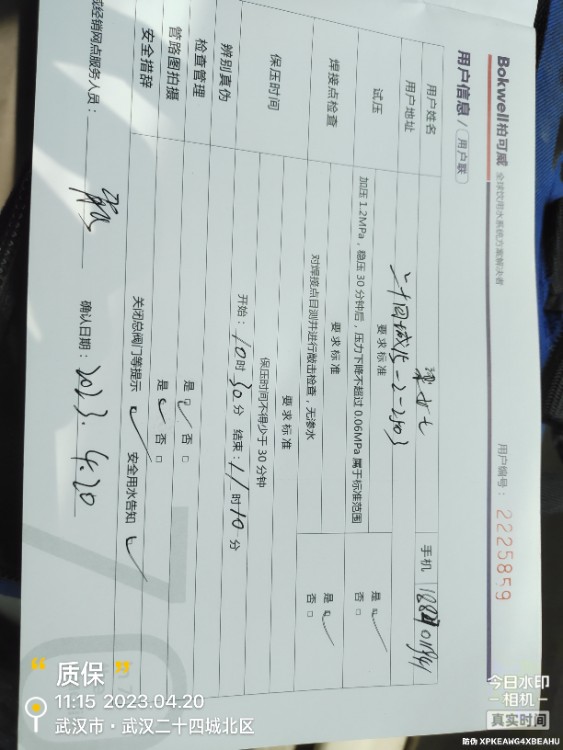 Bokwell柏可威 全球饮用水系统方案解决者
用户编号：2225859
用户信息/用户联
用户姓名
女士
手机
用户地址
二十四城15-2-2903
试压
要求标准
加压1.2MPa，稳压30分钟后，压力下降不超过0.06MPa属于标准范围
是☑
否□
焊接点检查
要求标准
对焊接点目测并进行敲击检查，无渗水
是☑
否□
保压时间
要求标准
保压时间不得少于30分钟
开始：10时30分 结束：11时10分
辨别真伪
是☑ 否□
检查管理
是☑ 否□
管路图拍摄
安全措辞
关闭总阀门等提示✓ 安全用水告知✓
经销网点服务人员：
确认日期：2023.4.20
“质保”
11:15 2023.04.20
武汉市·武汉二十四城北区
今日水印
相机
真实时间
防伪 XPKEAWG4XBEAHU